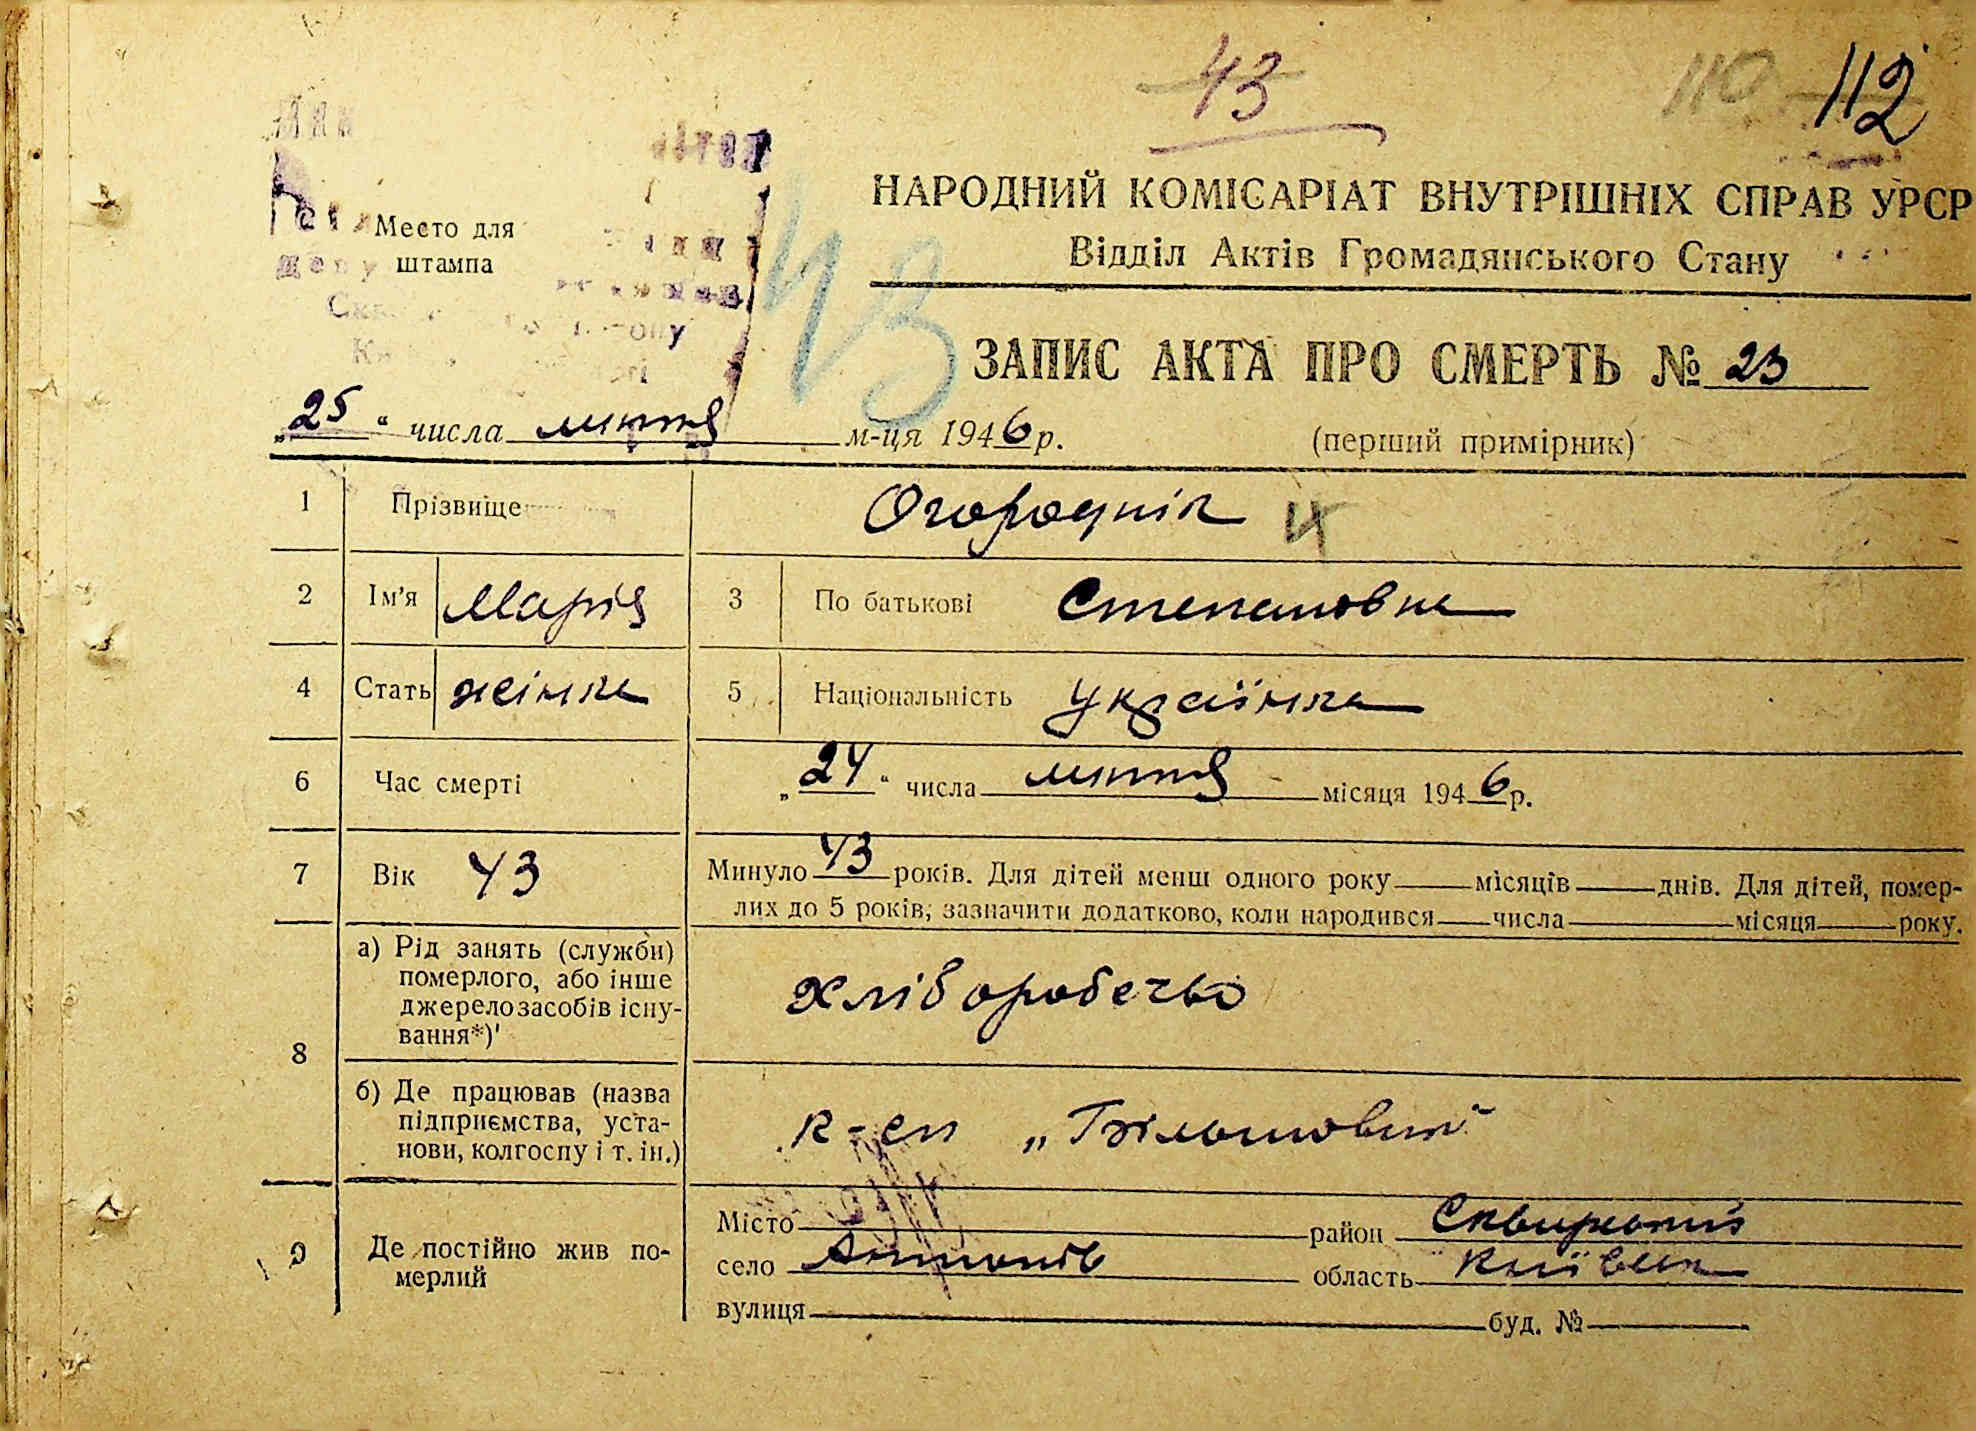 43
110 112
НАРОДНИЙ КОМІСАРІАТ ВНУТРІШНІХ СПРАВ УРСР
Место для
штампа
Відділ Актів Громадянського Стану
43
ЗАПИС АКТА ПРО СМЕРТЬ № 23
„25“ числа лютня м-ця 1946 р.
(перший примірник)
1 Прізвище Огороднік и
2 Ім'я Марія 3 По батькові Степановна
4 Стать жінка 5 Національність українка
6 Час смерті „24“ числа лютня місяця 1946 р.
7 Вік 43 Минуло 43 років. Для дітей менш одного року місяців днів. Для дітей, помер-
лих до 5 років, зазначити додатково, коли народився числа місяця року.
8 а) Рід занять (служби)
померлого, або інше
джерело засобів існу-
вання*)
хліборобство
б) Де працював (назва
підприємства, уста-
нови, колгоспу і т. ін.)
к-сп „Більшовик“
9 Де постійно жив по-
мерлий
Місто район Сквирський
село Антонів область Київськ
вулиця буд. №